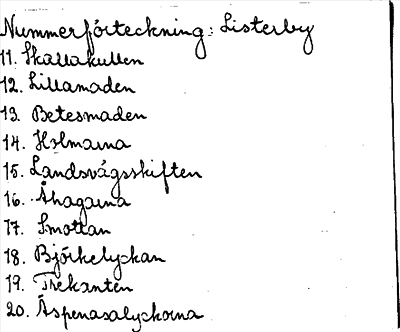 Nummerförteckning: Listerby
11. Skallakullen
12. Lillamaden
13. Betesmaden
14. Holmarna
15. Landsvägsskiften
16. Åhagarna
17. Smottan
18. Björkelyckan
19. Trekanten
20. Äspenäsalyckorna